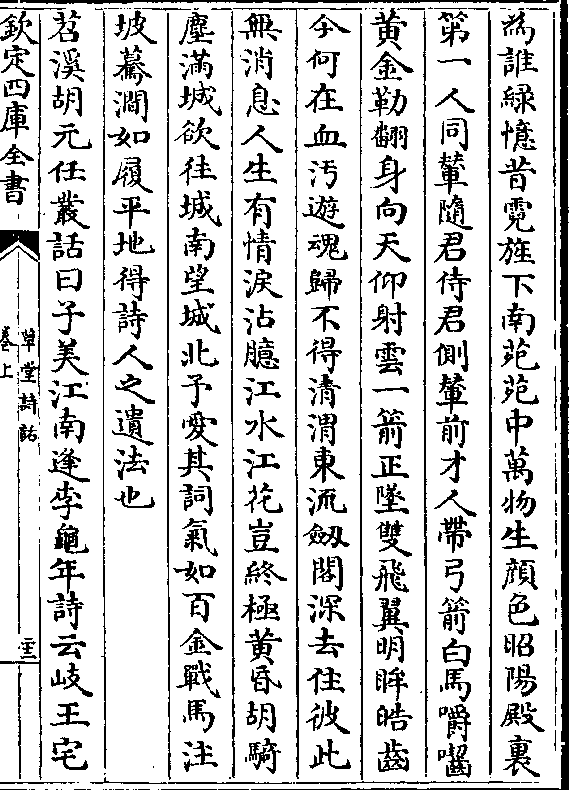 為誰緑憶昔霓旌下南苑苑中萬物生顔色昭陽殿裏
第一人同輦隨君侍君側輦前才人帶弓箭白馬嚼囓
黄金勒翻身向天仰射雲一箭正墜雙飛翼明眸皓齒
今何在血汚遊魂歸不得清渭東流劔閣深去住彼此
無消息人生有情淚沾臆江水江花豈終極黄昏胡騎
塵滿城欲往城南望城北予愛其詞氣如百金戰馬注
坡驀澗如履平地得詩人之遺法也
苕溪胡元任叢話曰子美江南逢李龜年詩云岐王宅
欽定四庫全書
草堂詩話
卷上
二十三